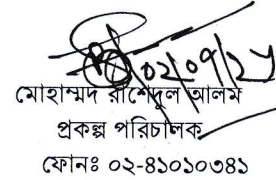 ০২/০৭/২৬
মোহাম্মদ রাশেদুল আলম
প্রকল্প পরিচালক
ফোনঃ ০২-৪১০১০৩৪১